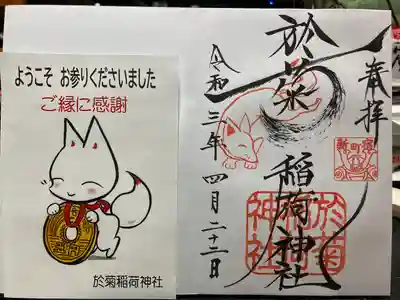 ようこそ お参りくださいました
ご縁に感謝
於菊稲荷神社
奉拝
新町宿
於菊
稲荷神社
於菊
稲荷
神社
令和三年四月二十二日